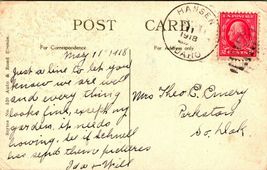 POST CARD
For Correspondence
For Address only
HANSEN
11
1918
IDAHO
U.S. POSTAGE
2 CENTS 2
May 11 1918
Just a line to let you
know we are well
and every thing
looks fine, except my
garden, it needs
howing. See if Schnell
has send them pictures
Ida & Will
Mrs Theo E. Emery
Parkston
So. Dak.